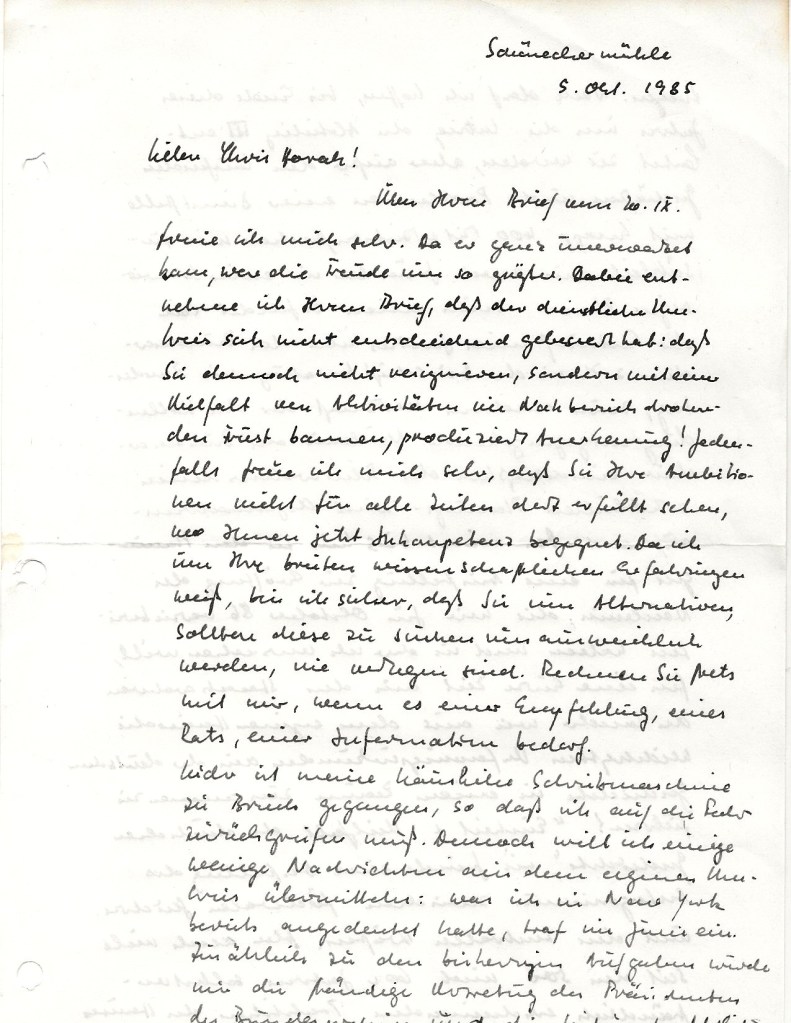 Schönecker mühle
5. Okt. 1985
Lieber Chris Horak!
Über Ihren Brief vom 20. IX.
freue ich mich sehr. Da er ganz unerwartet
kam, war die Freude um so größer. Dabei ent-
nehme ich Ihrem Brief, daß der dienstliche Um-
kreis sich nicht entscheidend gebessert hat: daß
Sie dennoch nicht resignieren, sondern mit einer
Vielfalt von Aktivitäten im Nahbereich drohen-
den Frust bannen, produziert Anerkennung! Jeden-
falls freue ich mich sehr, daß Sie Ihre Ambitio-
nen nicht für alle Zeiten dort erfüllt sehen,
wo Ihnen jetzt Inkompetenz begegnet. Da ich
um Ihre breiten wissenschaftlichen Erfahrungen
weiß, bin ich sicher, daß Sie um Alternativen,
sollten diese zu suchen unausweichlich
werden, nie verlegen sind. Rechnen Sie stets
mit mir, wenn es einer Empfehlung, eines
Rats, einer Information bedarf.
Leider ist meine häusliche Schreibmaschine
zu Bruch gegangen, so daß ich auf die Feder
zurückgreifen muß. Dennoch will ich einige
wenige Nachrichten aus dem eigenen Um-
kreis übermitteln: was ich in New York
bereits angedeutet hatte, traf im Juni ein.
Zusätzlich zu den bisherigen Aufgaben wurde
mir die ständige Vertretung des Präsidenten
des Bundesarchivs und die